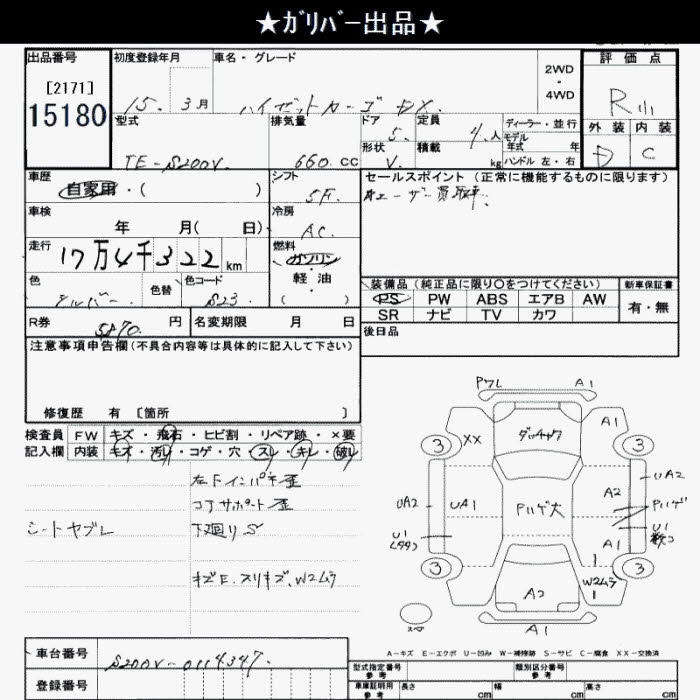 ★ｶﾞﾘﾊﾞｰ出品★
出品番号 初度登録年月 車名・グレード 評価点
[2171] 2WD
15180 15. 3月 ハイゼットカーゴ DX. ・4WD R
型式 排気量 ドア 定員 ディーラー・並行 外装 内装
5. 4.人 モデル年式 年
TE-S200V. 660.cc 形状 V. 積載 kg ハンドル 左・右 D C
車歴 シフト セールスポイント (正常に機能するものに限ります)
自家用・( ) 5F. ユーザー買取車.
車検 冷房
年 月( 日) AC.
走行 燃料
17万4千322km ガソリン・軽油
装備品 (純正品に限り○をつけてください) 新車保証書
色 シルバー. 色替 色コード S23. ( ) PS PW ABS エアB AW 有・無
SR ナビ TV カワ
R券 5870. 円 名変期限 月 日 後日品
注意事項申告欄(不具合内容等は具体的に記入して下さい)
修復歴 有 [箇所 ]
検査員 FW キズ・飛石・ヒビ割・リペア跡・×要
記入欄 内装 キズ・汚レ・コゲ・穴・スレ・キレ・破レ
左Fインパネ歪
コアサポート歪
シートヤブレ 下廻りS
キズE.スリキズ.W2ムラ
A1
A1
3 XX 3
A2
UA2
UA2 UA1 Pハゲ大 Pハゲ
U1
U1
A1
3 3
W2ムラ
A2
A1
A-キズ E-エクボ U-凹み W-補修跡 S-サビ C-腐食 XX-交換済
車台番号 S200V-0114347.
型式指定番号 参考 類別区分番号 参考
登録番号 車庫証明用 参考 長さ cm 幅 cm 高さ cm